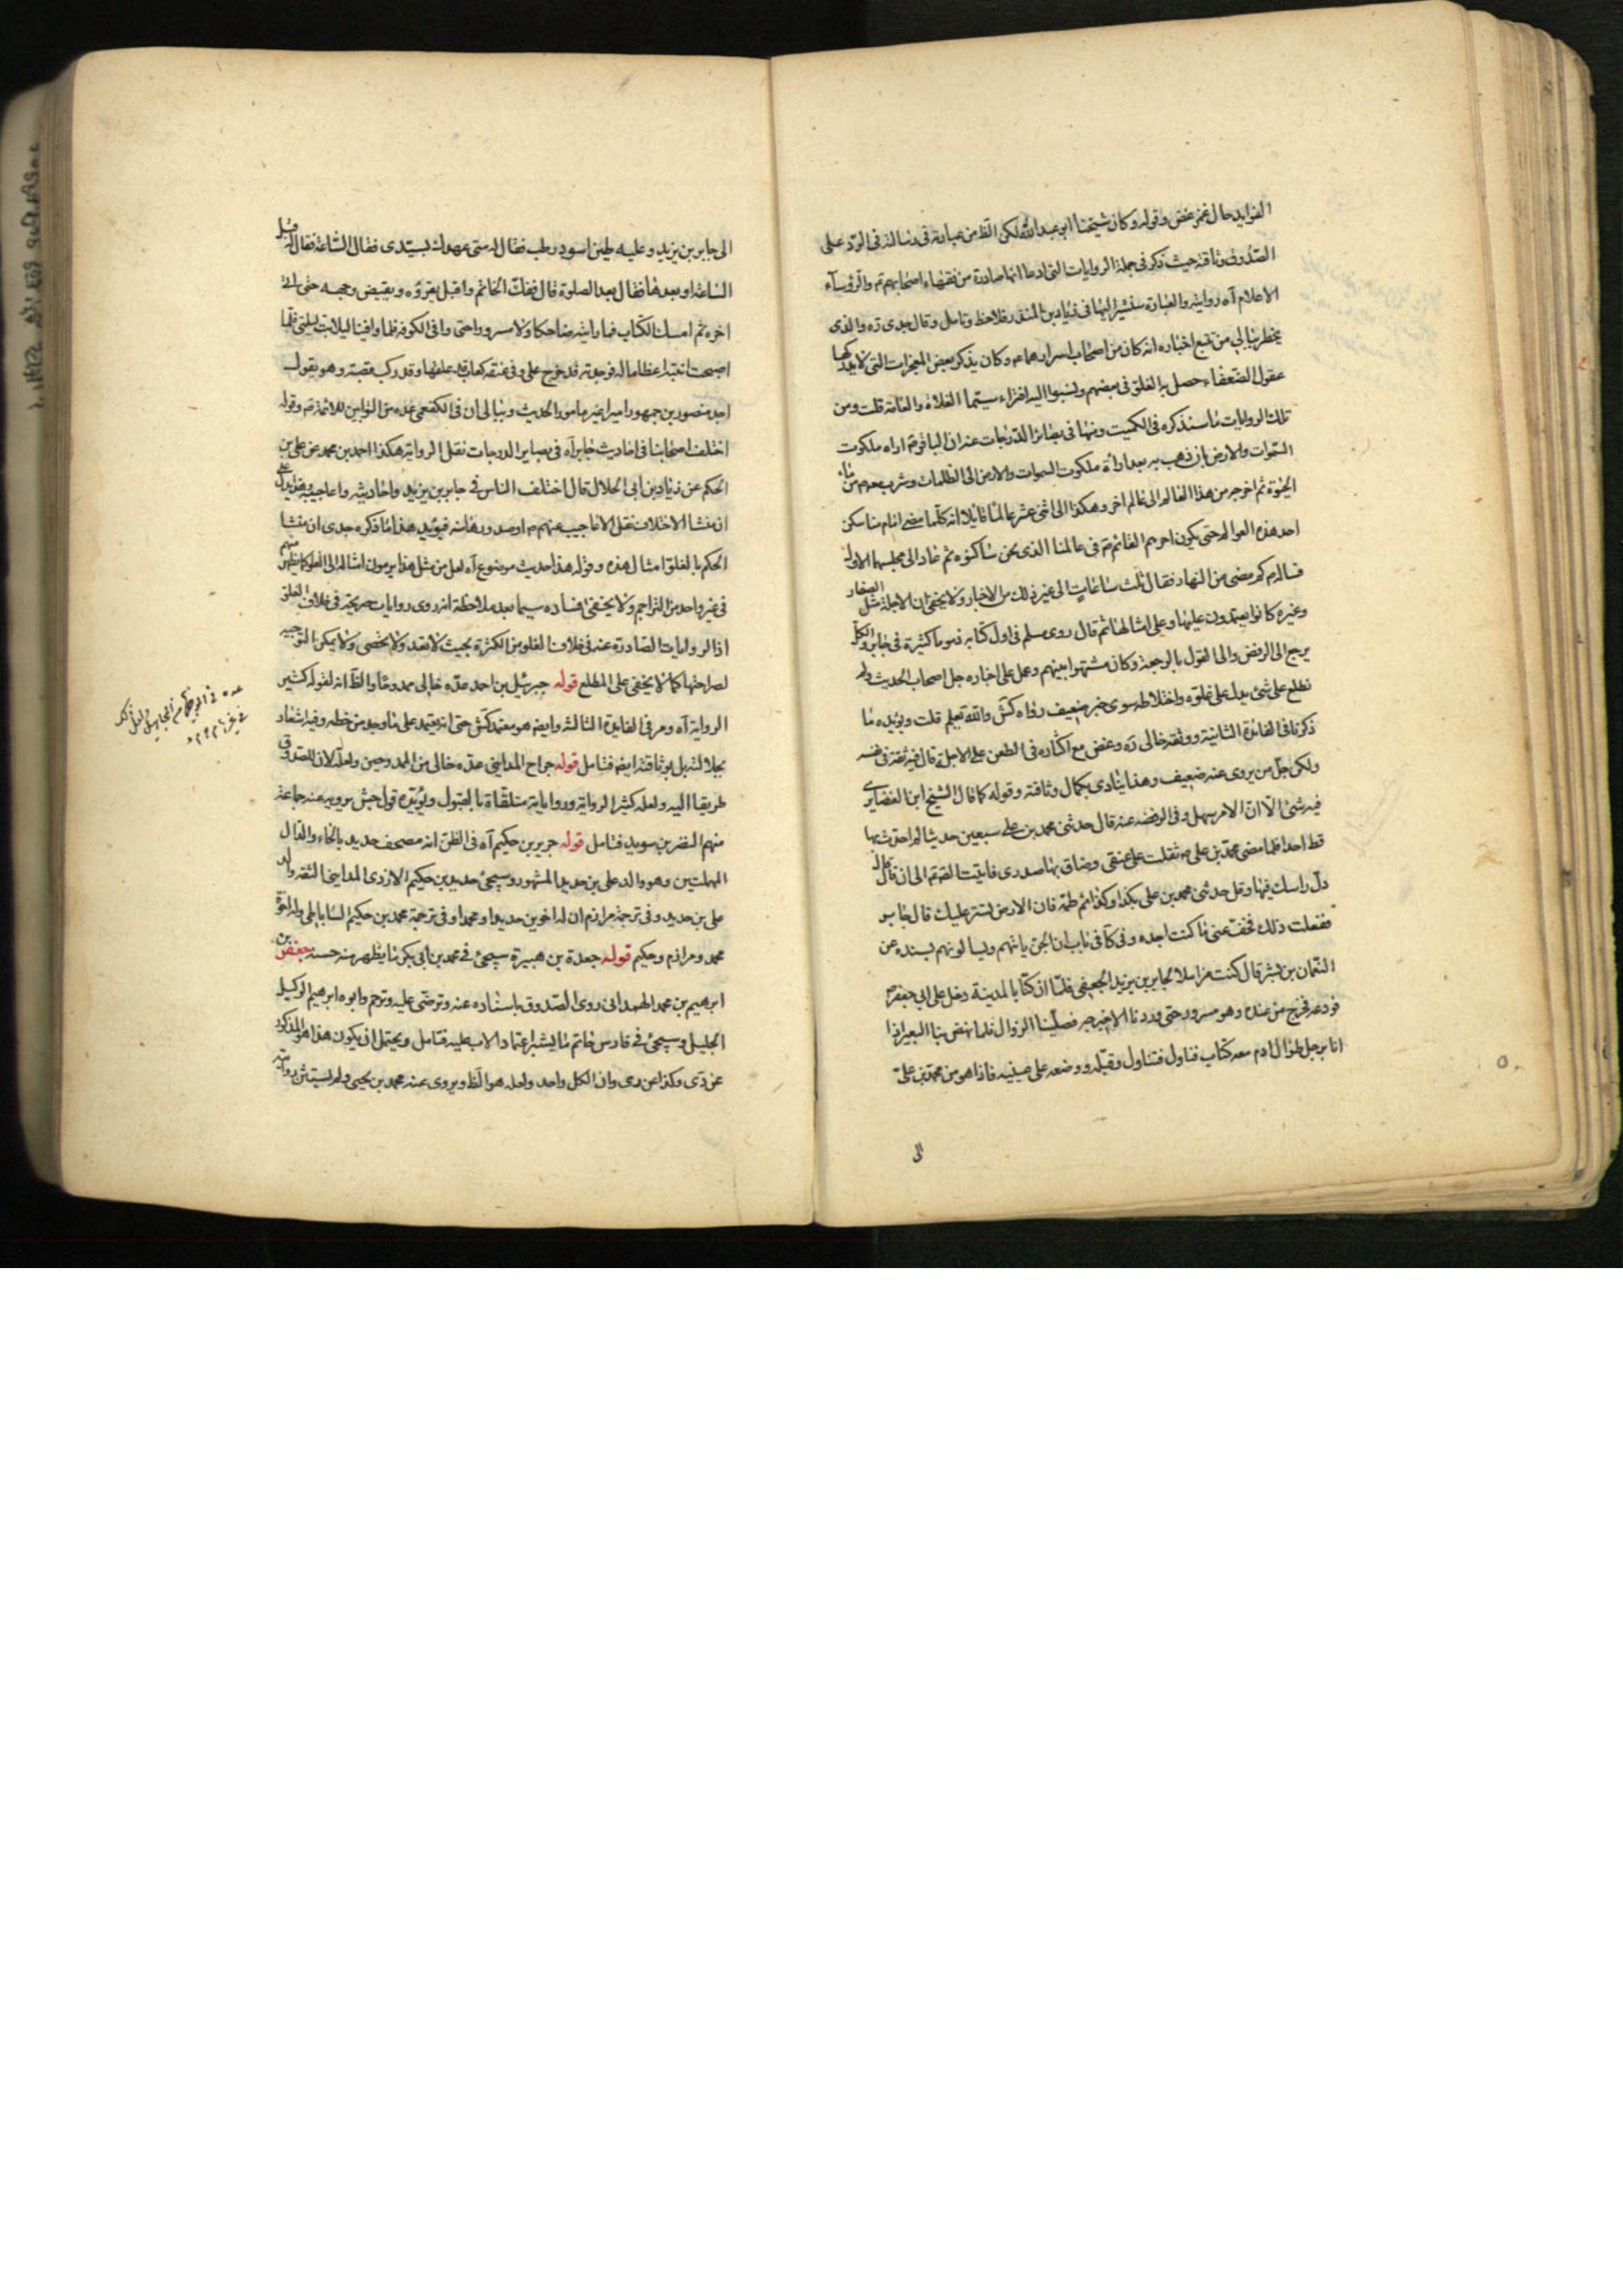 الفوايد حال غمز غض وقوله وكان شيخنا ابو عبد الله لكن الظ من عبارته فى رسالته فى الرد على
الصدوق وثاقته حيث ذكر فى جملة الروايات التى ادعا انها صادرة من فقهاء اصحابهم ع والرؤساء
الاعلام آه روايته والعبارة سنشير اليها فى زياد بن المنذر فلاحظ وتامل وقال جدى ره والذى
يخطر ببالى من تتبع اخباره انه كان من اصحاب اسرارهما ع وكان يذكر بعض المعجزات التى لا يدركها
عقول الضعفاء حصل به الغلو فى بعضهم ونسبوا اليه افتراء سيما الغلاة والعامة قلت ومن
تلك الروايات ما سنذكره فى الكميت ومنها فى بصائر الدرجات عنه ان الباقر ع اراه ملكوت
السموات والارض بان ذهب به بعد اراءة ملكوت السموات والارض الى الظلمات وشرب معه من ماء
الحيوة ثم اخرجه من هذا العالم الى عالم اخر وهكذا الى اثنى عشر عالما قايلا انه كلما مضى امام منا سكن
احد هذه العوالم حتى يكون اخرهم القائم ع فى عالمنا الذى نحن ساكنوه ثم عاد الى مجلسهما الاول
فساله ع كم مضى من النهار فقال ثلث ساعات الى غير ذلك من الاخبار ولا يخفى ان الاجلة مثل الصفار
وغيره كانوا يعتمدون عليها وعلى امثالها ثم قال روى مسلم فى اول كتابه ذموما كثيرة فى جابر والكل
يرجع الى الرفض والى القول بالرجعة وكان مشتهرا بينهم وعمل على اخباره جل اصحاب الحديث ولم
نطلع على شئ يدل على غلوه واختلاطه سوى خبر ضعيف رواه كش والله تعالى يعلم قلت ويؤيده ما
ذكرنا فى الفائدة الثانية ووثقه خالى ره وغض مع اكثاره فى الطعن على الاجلة قال فيه ثقة فى نفسه
ولكن جل من يروى عنه ضعيف وهذا ينادى بكمال وثاقته وقوله كما قال الشيخ ابن الغضايرى
فيه شئ الا ان الامر سهل وفى الروضة عنه قال حدثنى محمد بن على سبعين حديثا لم احدث بها
قط احدا فلما مضى محمد بن على ع ثقلت على عنقى وضاق بها صدرى فاتيت الصادق ع الى ان قال
دل راسك فيها وقل حدثنى محمد بن على بكذا وكذا ثم طمه فان الارض تستر عليك قال جابر
ففعلت ذلك فخف عنى ما كنت اجده وفى كا فى باب ان الجن ياتيهم ويسالونهم بسنده عن
النعمان بن بشر قال كنت مزاملا لجابر بن يزيد الجعفى فلما ان كنا بالمدينة دخل على ابى جعفر ع
فودعه فخرج من عنده وهو مسرور حتى وردنا الاخيرجه فصلينا الزوال فلما نهض بنا البعير اذا
انا برجل طوال ادم معه كتاب فناوله فتناوله وقبله ووضعه على عينيه فاذا هو من محمد بن على
الى
الى جابر بن يزيد وعليه طين اسود رطب فقال له متى عهدك بسيدى فقال الساعة فقال له قبل
الصلوة او بعدها فقال بعد الصلوة قال ففك الخاتم واقبل يقرؤه ويقبض وجهه حتى اتى
اخره ثم امسك الكتاب فما رايته ضاحكا ولا مسرورا حتى وافى الكوفة فلما وافينا ليلا بت ليلتى فلما
اصبحت اتيته اعظاما له فوجدته قد خرج على وفى عنقه كعاب قد علقها وقد ركب قصبة وهو يقول
اجد منصور بن جمهور اميرا غير مامور الحديث وببالى ان فى الكفعمى عده من البوابين للائمة ع وقوله
اختلف اصحابنا فى احاديث جابر آه فى بصاير الدرجات نقل الرواية هكذا احمد بن محمد عن على بن
الحكم عن زياد بن ابى الحلال قال اختلف الناس فى جابر بن يزيد واحاديثه واعاجيبه
ان منشا الاختلاف نقل الاعاجيب عنهم ع او صدورها منه فيؤيد هذا ما ذكره جدى ان منشا
الحكم بالغلو امثال هذه وقوله هذا حديث موضوع آه لعل من مثل هذا يرمون امثاله الى الغلو كما يظهر منهم
فى غير واحد من التراجم ولا يخفى فساده سيما بعد ملاحظة انه روى روايات صريحة فى خلاف الغلو
اذ الروايات الصادرة عنه فى خلاف الغلو من الكثرة بحيث لا تعد ولا تحصى ولا يمكن التوجيه
لصراحتها كما لا يخفى على المطلع قوله جبرئيل بن احمد عده خالى ممدوحا والظ انه لقوله كثير
الرواية آه ومر فى الفايدة الثالثة وايضا هو معتمد كش حتى انه يعتمد على ما وجد من خطه وفيه اشعار
بجلالته بل بوثاقته ايضا فتامل قوله جراح المداينى عده خالى من الممدوحين ولعله لان للصدوق
طريقا اليه ولعله كثير الرواية ورواياته متلقاة بالقبول ويؤيده قول جش يرويه عنه جماعة
منهم النضر بن سويد فتامل قوله جرير بن حكيم آه فى الظن انه مصحف حديد بالحاء والدال
المهملتين وهو والد على بن حديد المشهور وسيجئ حديد بن حكيم الازدى المداينى الثقة والد
على بن حديد وفى ترجمة مرازم ان له اخوين حديدا ومحمدا وفى ترجمة محمد بن حكيم الساباطى وله اخوة
محمد ومرازم وحكيم قوله جعدة بن هبيرة سيجئ فى محمد بن ابى بكر ما يظهر منه حسنه جعفر بن
ابرهيم بن محمد الهمدانى روى الصدوق باسناده عنه وترضى عليه وترحم وابوه ابرهيم الوكيل
الجليل وسيجئ فى فارس بن حاتم ما يشير اعتماد الاب عليه فتامل ويحتمل ان يكون هذا هو المذكور
عن دى وكذا عن رى وان الكل واحد ولعله هو الظ ويروى عنه محمد بن يحيى ولم يستثن روايته